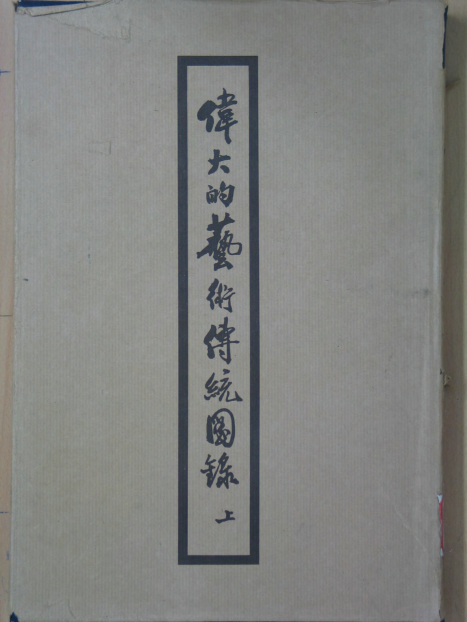 偉大的藝術傳統圖錄 上